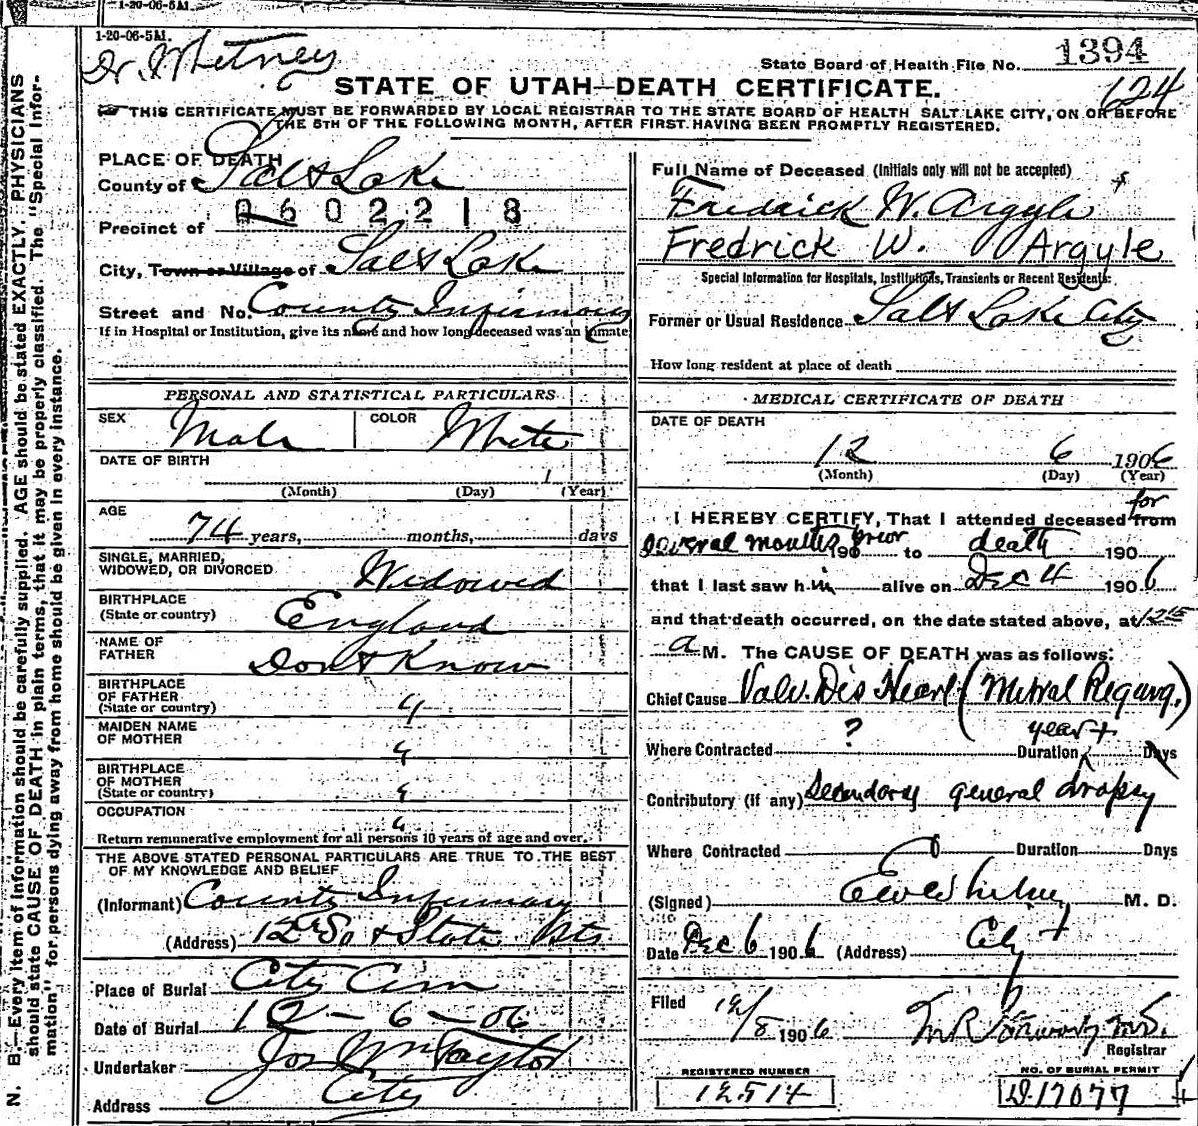 1-20-06-5M.
1-20-06-5M.
Dr. Whitney
State Board of Health File No. 1394
124
STATE OF UTAH—DEATH CERTIFICATE.
THIS CERTIFICATE MUST BE FORWARDED BY LOCAL REGISTRAR TO THE STATE BOARD OF HEALTH SALT LAKE CITY, ON OR BEFORE
THE 5TH OF THE FOLLOWING MONTH, AFTER FIRST HAVING BEEN PROMPTLY REGISTERED.
N. B.—Every item of information should be carefully supplied. AGE should be stated EXACTLY. PHYSICIANS
should state CAUSE OF DEATH in plain terms, that it may be properly classified. The "Special Infor-
mation" for persons dying away from home should be given in every instance.
PLACE OF DEATH
County of Salt Lake
0602218
Precinct of
City, Town or Village of Salt Lake
Street and No. County Infirmary
If in Hospital or Institution, give its name and how long deceased was an inmate
PERSONAL AND STATISTICAL PARTICULARS
SEX Male COLOR White
DATE OF BIRTH
1
(Month) (Day) (Year)
AGE
74 years, months, days
SINGLE, MARRIED,
WIDOWED, OR DIVORCED Widowed
BIRTHPLACE
(State or country) England
NAME OF
FATHER Don't Know
BIRTHPLACE
OF FATHER
(State or country) "
MAIDEN NAME
OF MOTHER "
BIRTHPLACE
OF MOTHER
(State or country) "
OCCUPATION "
Return remunerative employment for all persons 10 years of age and over.
THE ABOVE STATED PERSONAL PARTICULARS ARE TRUE TO THE BEST
OF MY KNOWLEDGE AND BELIEF
(Informant) County Infirmary
(Address) 12th So & State Sts
Place of Burial City Cem
Date of Burial 12-6-06
Undertaker Jos Wm Taylor
Address City
Full Name of Deceased (Initials only will not be accepted)
Fredrick W. Argyle
Fredrick W. Argyle
Special Information for Hospitals, Institutions, Transients or Recent Residents:
Former or Usual Residence Salt Lake City
How long resident at place of death
MEDICAL CERTIFICATE OF DEATH
DATE OF DEATH
12 6 1906
(Month) (Day) (Year)
for
I HEREBY CERTIFY, That I attended deceased from
several months prior 190 to death 190
that I last saw h im alive on Dec 4 1906
and that death occurred, on the date stated above, at 12 15
a M. The CAUSE OF DEATH was as follows:
Chief Cause Valv. Dis Heart (Mitral Regurg.)
year +
Where Contracted ? Duration Days
Contributory (if any) Secondary general dropsy
Where Contracted Duration Days
(Signed) M. D.
Date Dec 6 1906 (Address) City
Filed 12/8 1906
Registrar
REGISTERED NUMBER
12514
NO. OF BURIAL PERMIT
D.17077